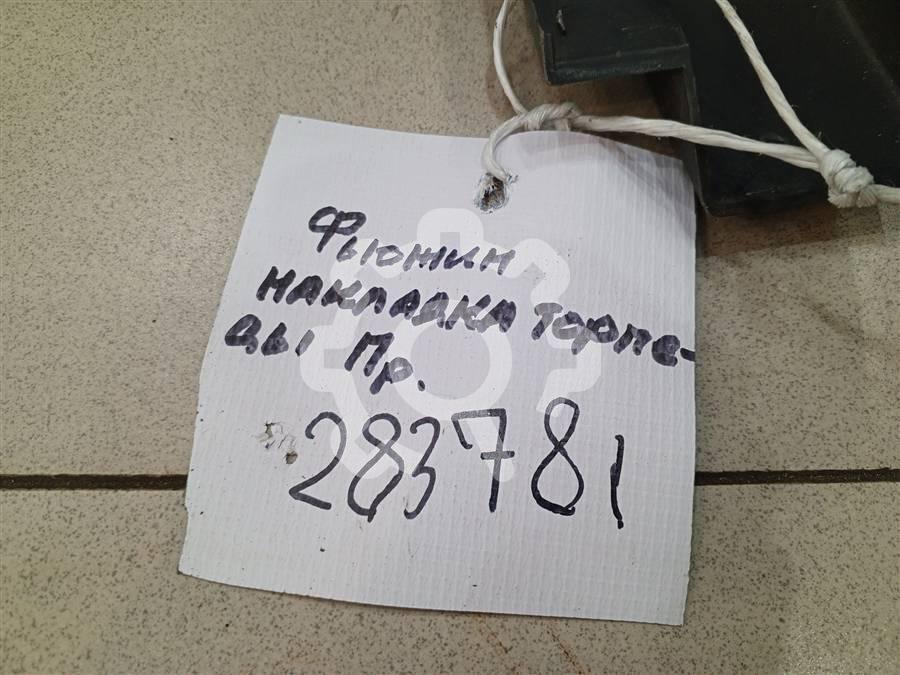 Фьюжин
накладка торпе-
ды Пр.
283781